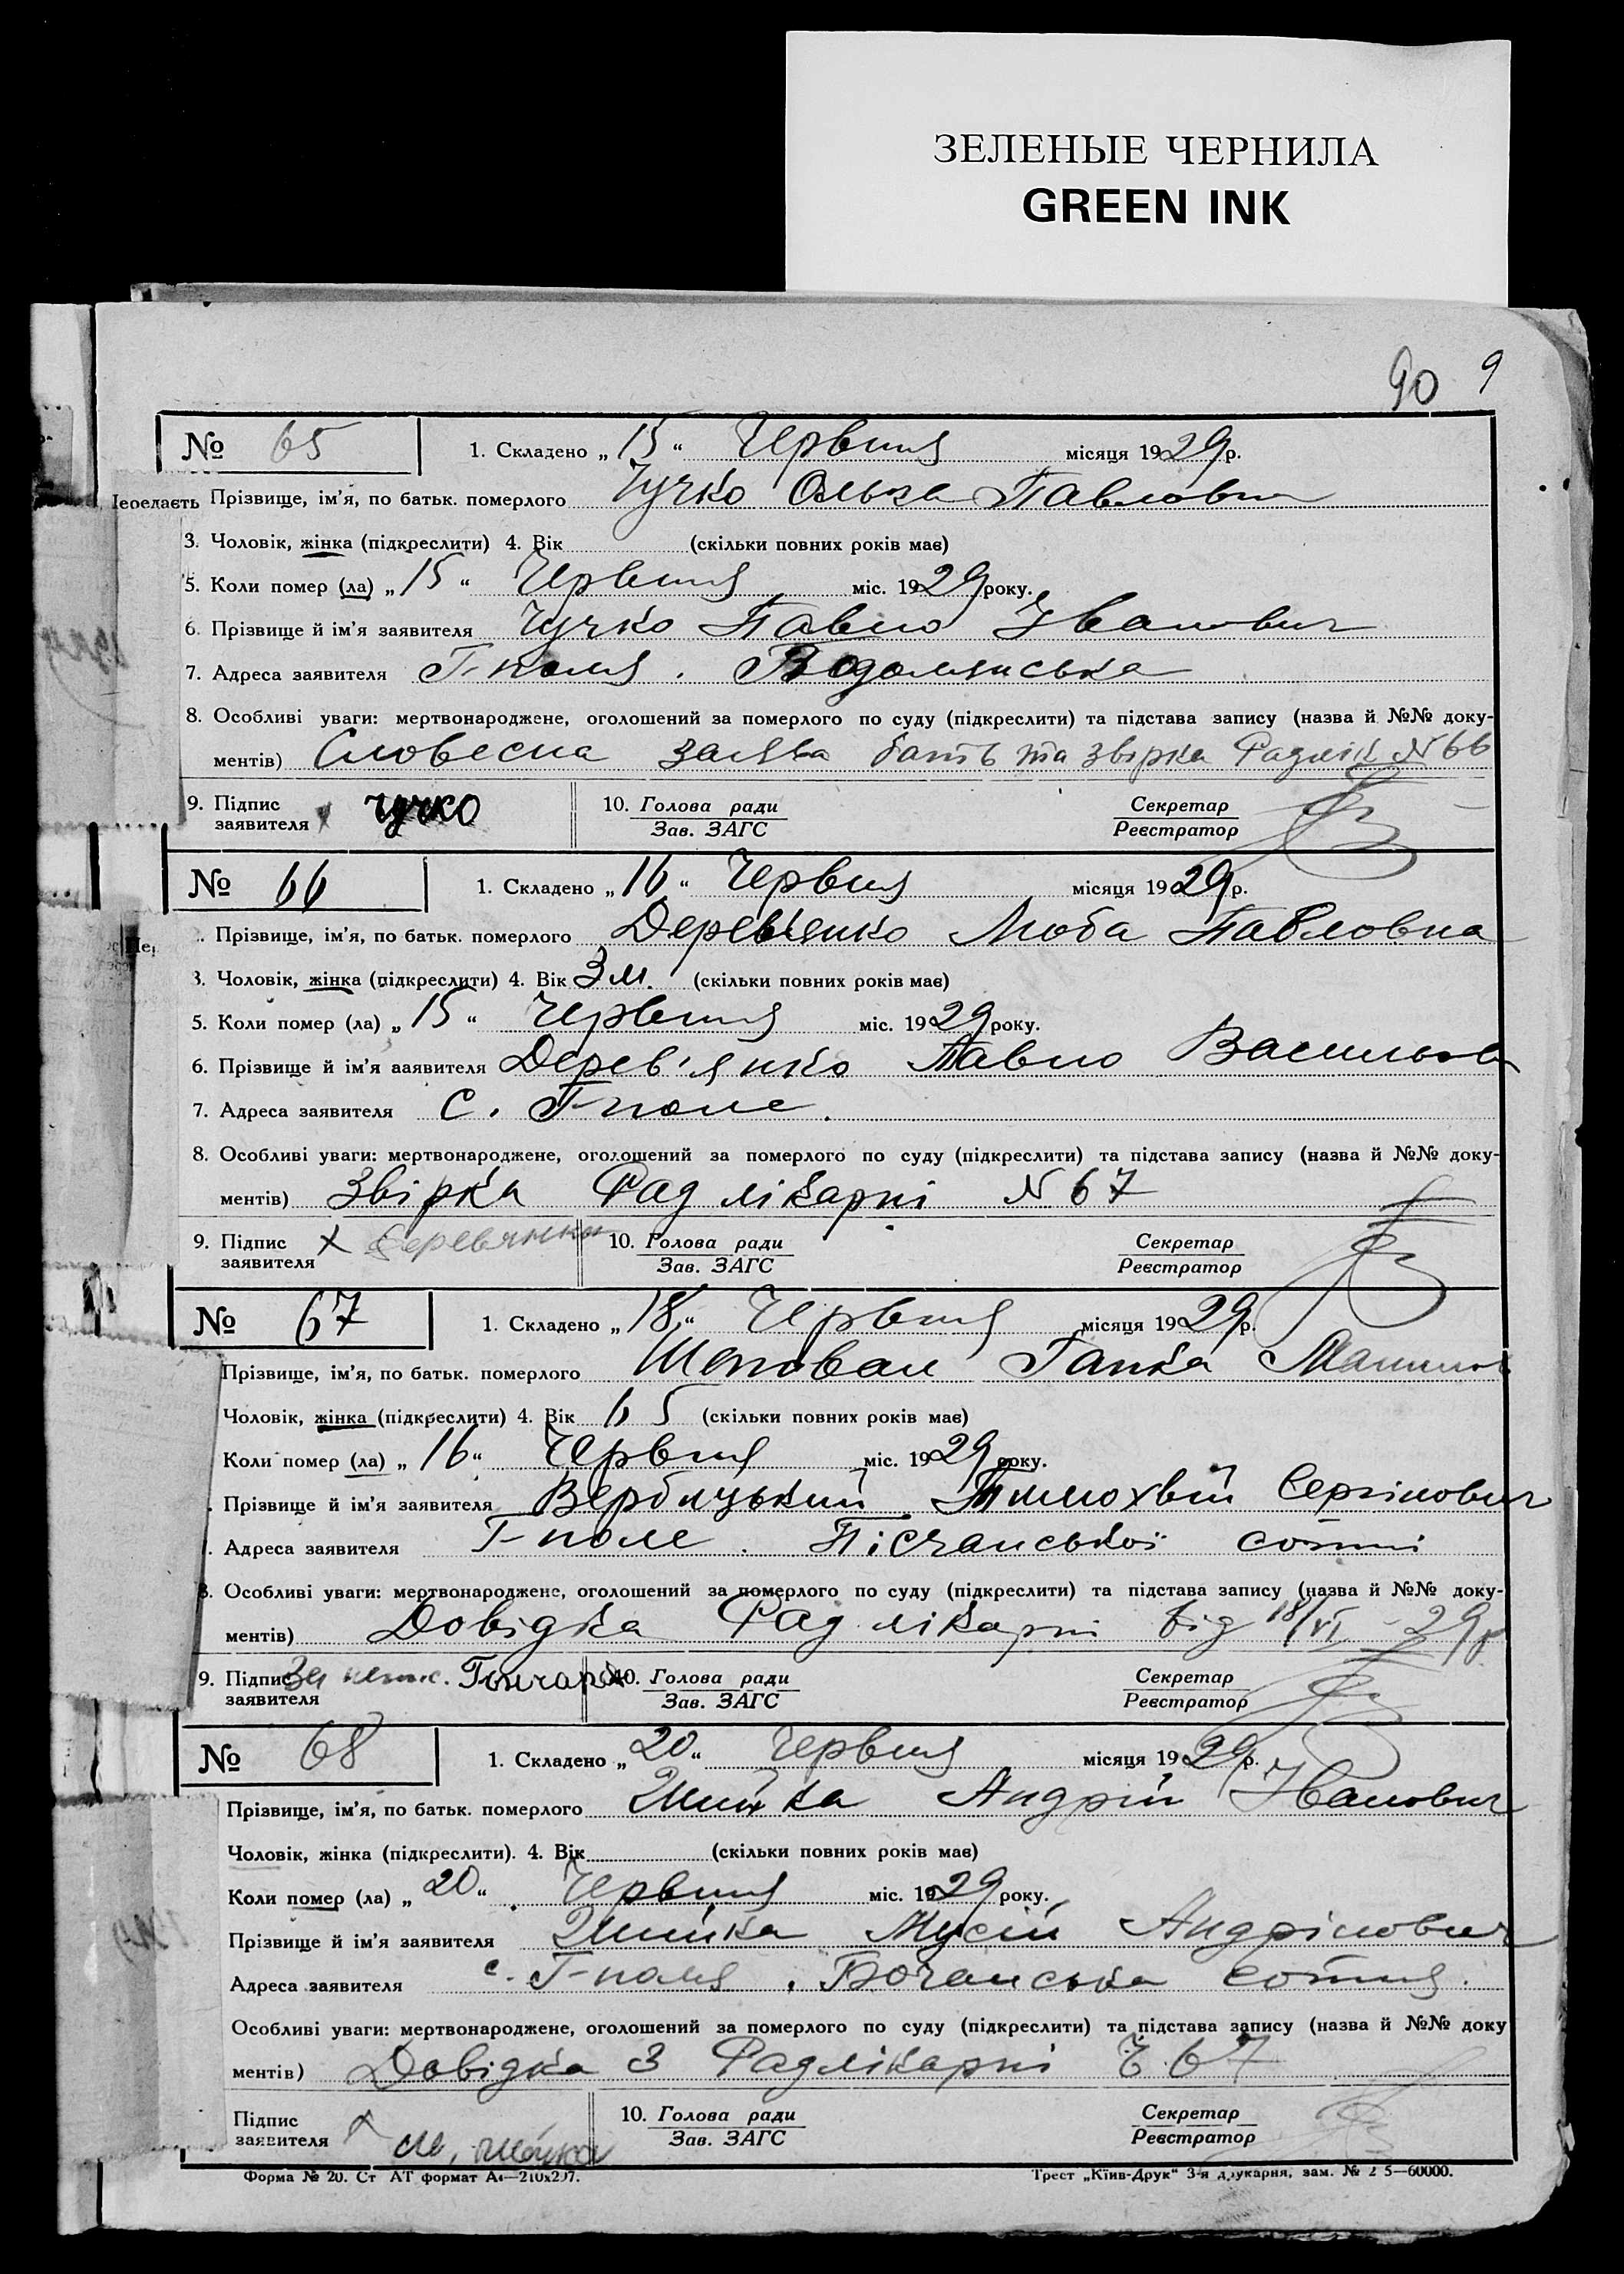 ЗЕЛЕНЫЕ ЧЕРНИЛА
GREEN INK
90 9
№ 65 1. Складено „15“ Червня місяця 1929р.
Прізвище, ім'я, по батьк. померлого Чучко Ольга Павловна
3. Чоловік, жінка (підкреслити) 4. Вік (скільки повних років має)
5. Коли помер (ла) „15“ Червня міс. 1929 року.
6. Прізвище й ім'я заявителя Чучко Павло Іванович
7. Адреса заявителя Г-поля.
8. Особливі уваги: мертвонароджене, оголошений за померлого по суду (підкреслити) та підстава запису (назва й №№ доку-
ментів) Словесна заява батьк та звірка Радлік N 66
9. Підпис заявителя х чучко 10. Голова ради Зав. ЗАГС Секретар Реєстратор
№ 66 1. Складено „16“ Червня місяця 1929р.
Прізвище, ім'я, по батьк. померлого Деревьенко Люба Павловна
3. Чоловік, жінка (підкреслити) 4. Вік 3 м. (скільки повних років має)
5. Коли помер (ла) „15“ Червня міс. 1929 року.
6. Прізвище й ім'я ааявителя Дерев'янко Павло Васильов
7. Адреса заявителя с. Г-поле.
8. Особливі уваги: мертвонароджене, оголошений за померлого по суду (підкреслити) та підстава запису (назва й №№ доку-
ментів) Звірка Рад лікарні N 67
9. Підпис заявителя х деревянко 10. Голова ради Зав. ЗАГС Секретар Реєстратор
№ 67 1. Складено „18“ Червня місяця 1929р.
Прізвище, ім'я, по батьк. померлого Шаповал Ганка
Чоловік, жінка (підкреслити) 4. Вік 65 (скільки повних років має)
Коли помер (ла) „16“ Червня міс. 1929 року.
Прізвище й ім'я заявителя Вербицький Тимохвій Сергійович
Адреса заявителя Г-поле. Пісчанської сотні
8. Особливі уваги: мертвонароджене, оголошений за померлого по суду (підкреслити) та підстава запису (назва й №№ доку-
ментів) Довідка Рад лікарні від 18/VI - 29 р
9. Підпис заявителя За непис. Гончар 10. Голова ради Зав. ЗАГС Секретар Реєстратор
№ 68 1. Складено „20“ Червня місяця 1929р.
Прізвище, ім'я, по батьк. померлого Шийка Андрій Іванович
Чоловік, жінка (підкреслити). 4. Вік (скільки повних років має)
Коли помер (ла) „20“ Червня міс. 1929 року.
Прізвище й ім'я заявителя Шийка Мусій Андрійович
Адреса заявителя с. Г-поля. Бочанська сотня.
Особливі уваги: мертвонароджене, оголошений за померлого по суду (підкреслити) та підстава запису (назва й №№ доку
ментів) Довідка з Радлікарні Ч. 67
Підпис заявителя х М. шейка 10. Голова ради Зав. ЗАГС Секретар Реєстратор
Форма № 20. Ст АТ формат А4—210х297. Трест „Київ-Друк“ 3-я друкарня, зам. № 2 5—60000.